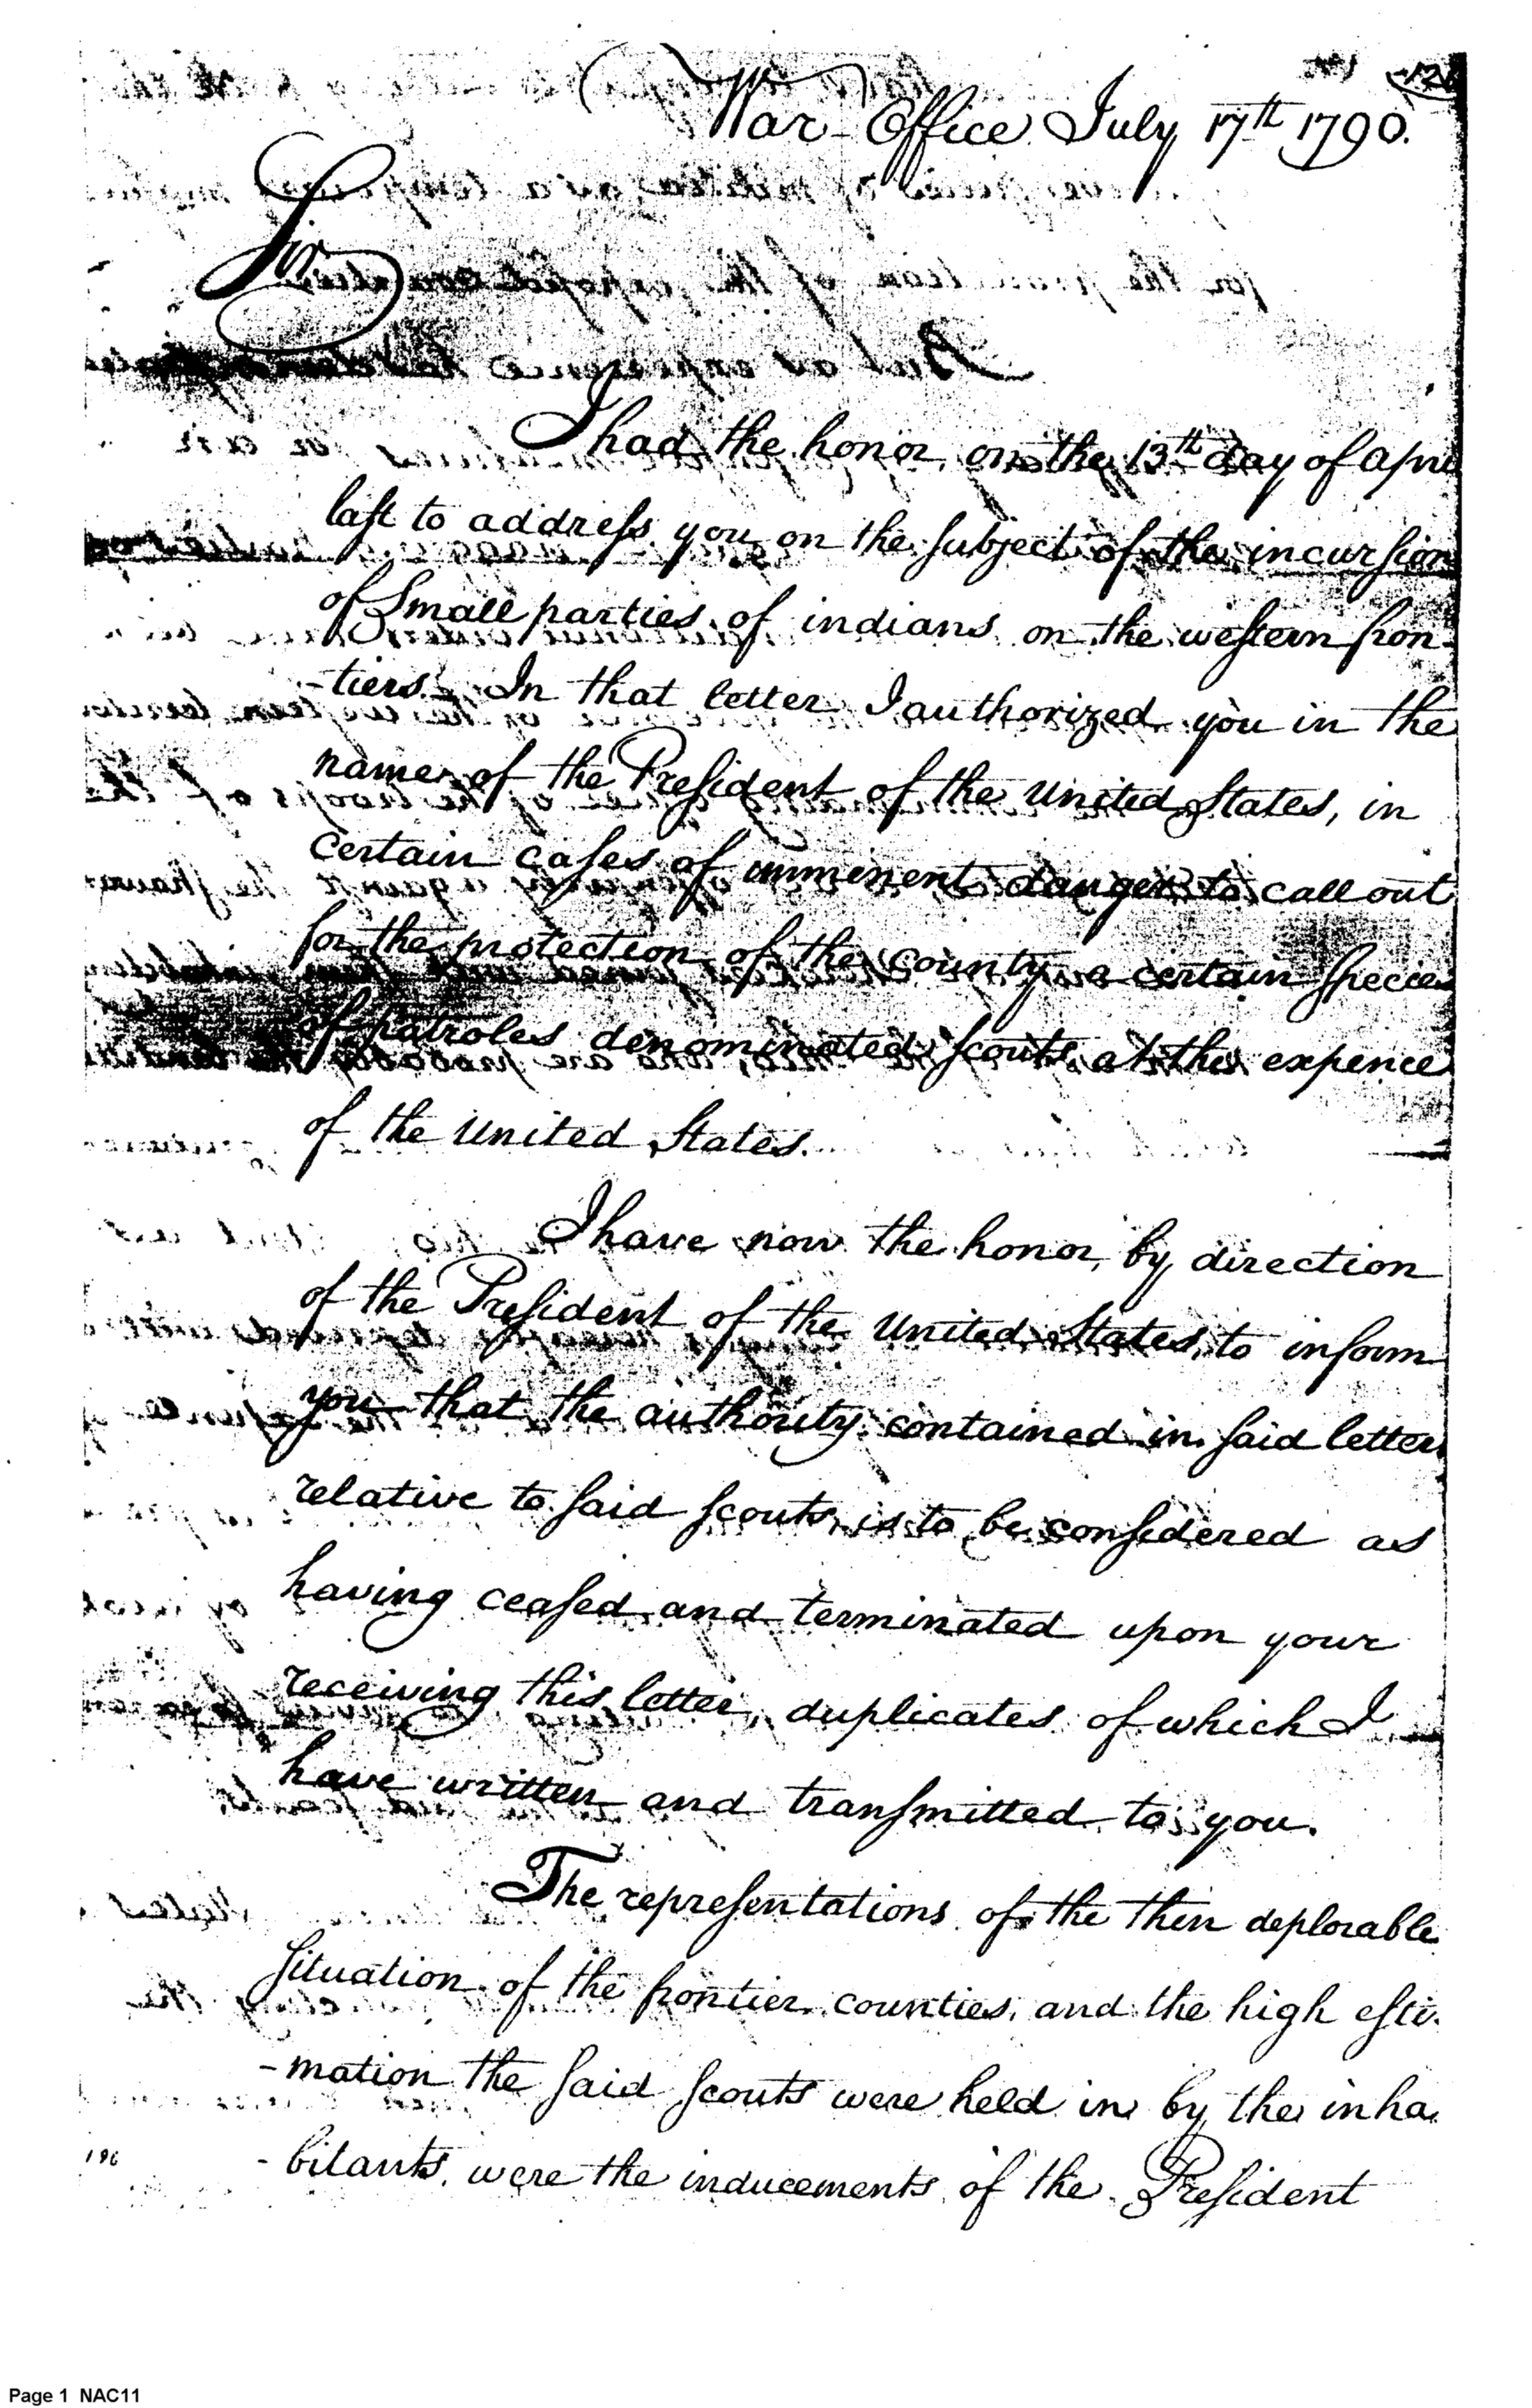 War Office July 17th 1790.
Sir
I had the honor, on the 13th day of April
last to address you on the subject of the incursion
of Small parties of indians on the western fron-
-tiers. In that letter I authorized you in the
name of the President of the United States, in
certain cases of imminent danger to call out
for the protection of the county a certain species
of patroles denominated scouts at the expence
of the United States.
I have now the honor, by direction
of the President of the United States, to inform
you that the authority contained in said letter
relative to said scouts, is to be considered as
having ceased and terminated upon your
receiving this letter, duplicates of which I
have written and transmitted to you.
The representations of the then deplorable
situation of the frontier counties, and the high esti-
-mation the said scouts were held in by the inha-
-bitants, were the inducements of the President
196
Page 1 NAC11